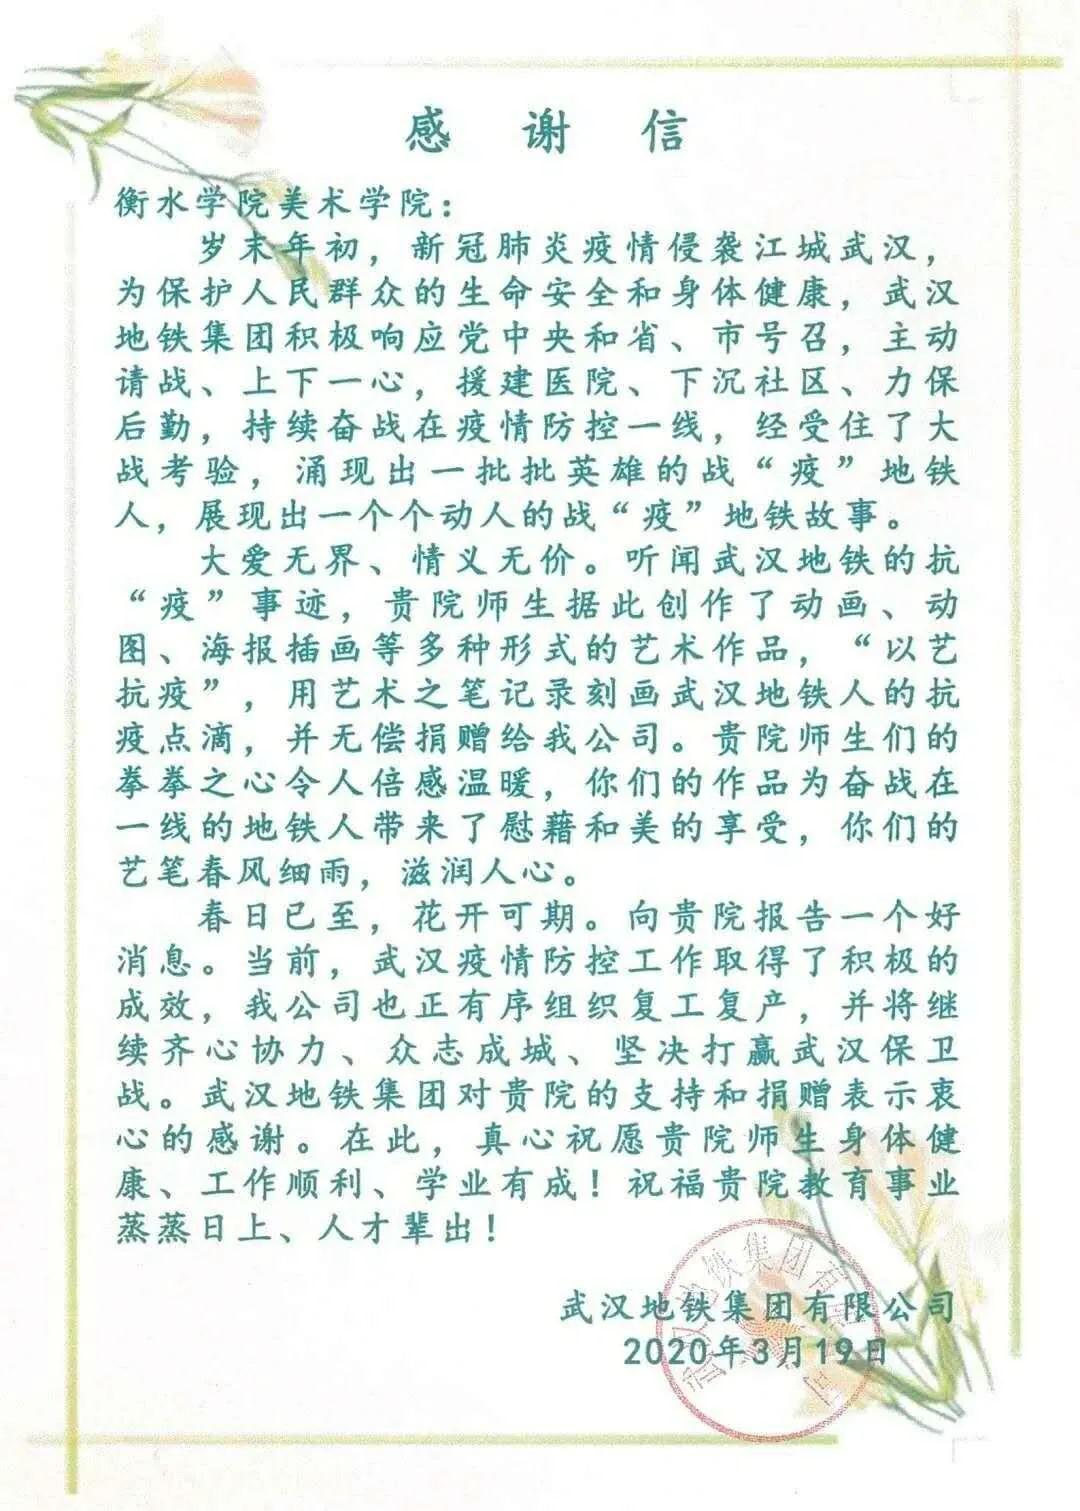 感谢信
衡水学院美术学院：
岁末年初，新冠肺炎疫情侵袭江城武汉，
为保护人民群众的生命安全和身体健康，武汉
地铁集团积极响应党中央和省、市号召，主动
请战、上下一心，援建医院、下沉社区、力保
后勤，持续奋战在疫情防控一线，经受住了大
战考验，涌现出一批批英雄的战“疫”地铁
人，展现出一个个动人的战“疫”地铁故事。
大爱无界、情义无价。听闻武汉地铁的抗
“疫”事迹，贵院师生据此创作了动画、动
图、海报插画等多种形式的艺术作品，“以艺
抗疫”，用艺术之笔记录刻画武汉地铁人的抗
疫点滴，并无偿捐赠给我公司。贵院师生们的
拳拳之心令人倍感温暖，你们的作品为奋战在
一线的地铁人带来了慰藉和美的享受，你们的
艺笔春风细雨，滋润人心。
春日已至，花开可期。向贵院报告一个好
消息。当前，武汉疫情防控工作取得了积极的
成效，我公司也正有序组织复工复产，并将继
续齐心协力、众志成城、坚决打赢武汉保卫
战。武汉地铁集团对贵院的支持和捐赠表示衷
心的感谢。在此，真心祝愿贵院师生身体健
康、工作顺利、学业有成！祝福贵院教育事业
蒸蒸日上、人才辈出！
武汉地铁集团有限公司
2020年3月19日
武汉地铁集团有限公司